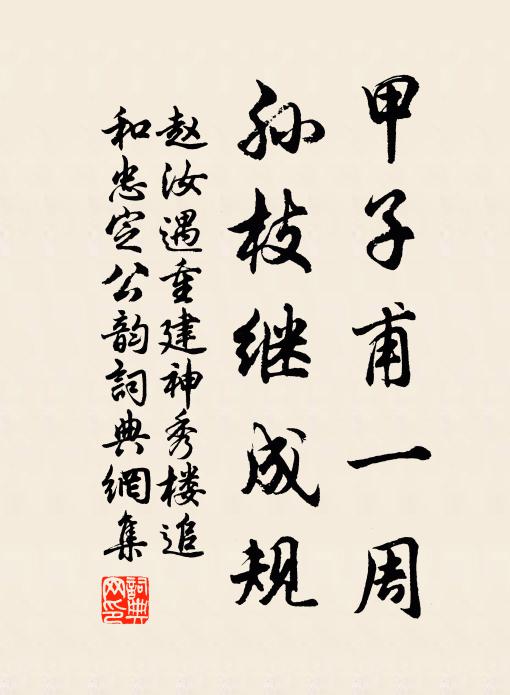 甲子甫一周
孙枝继成规
赵汝遇重建神秀楼追
和忠定公韵詞典網集
詞典网印